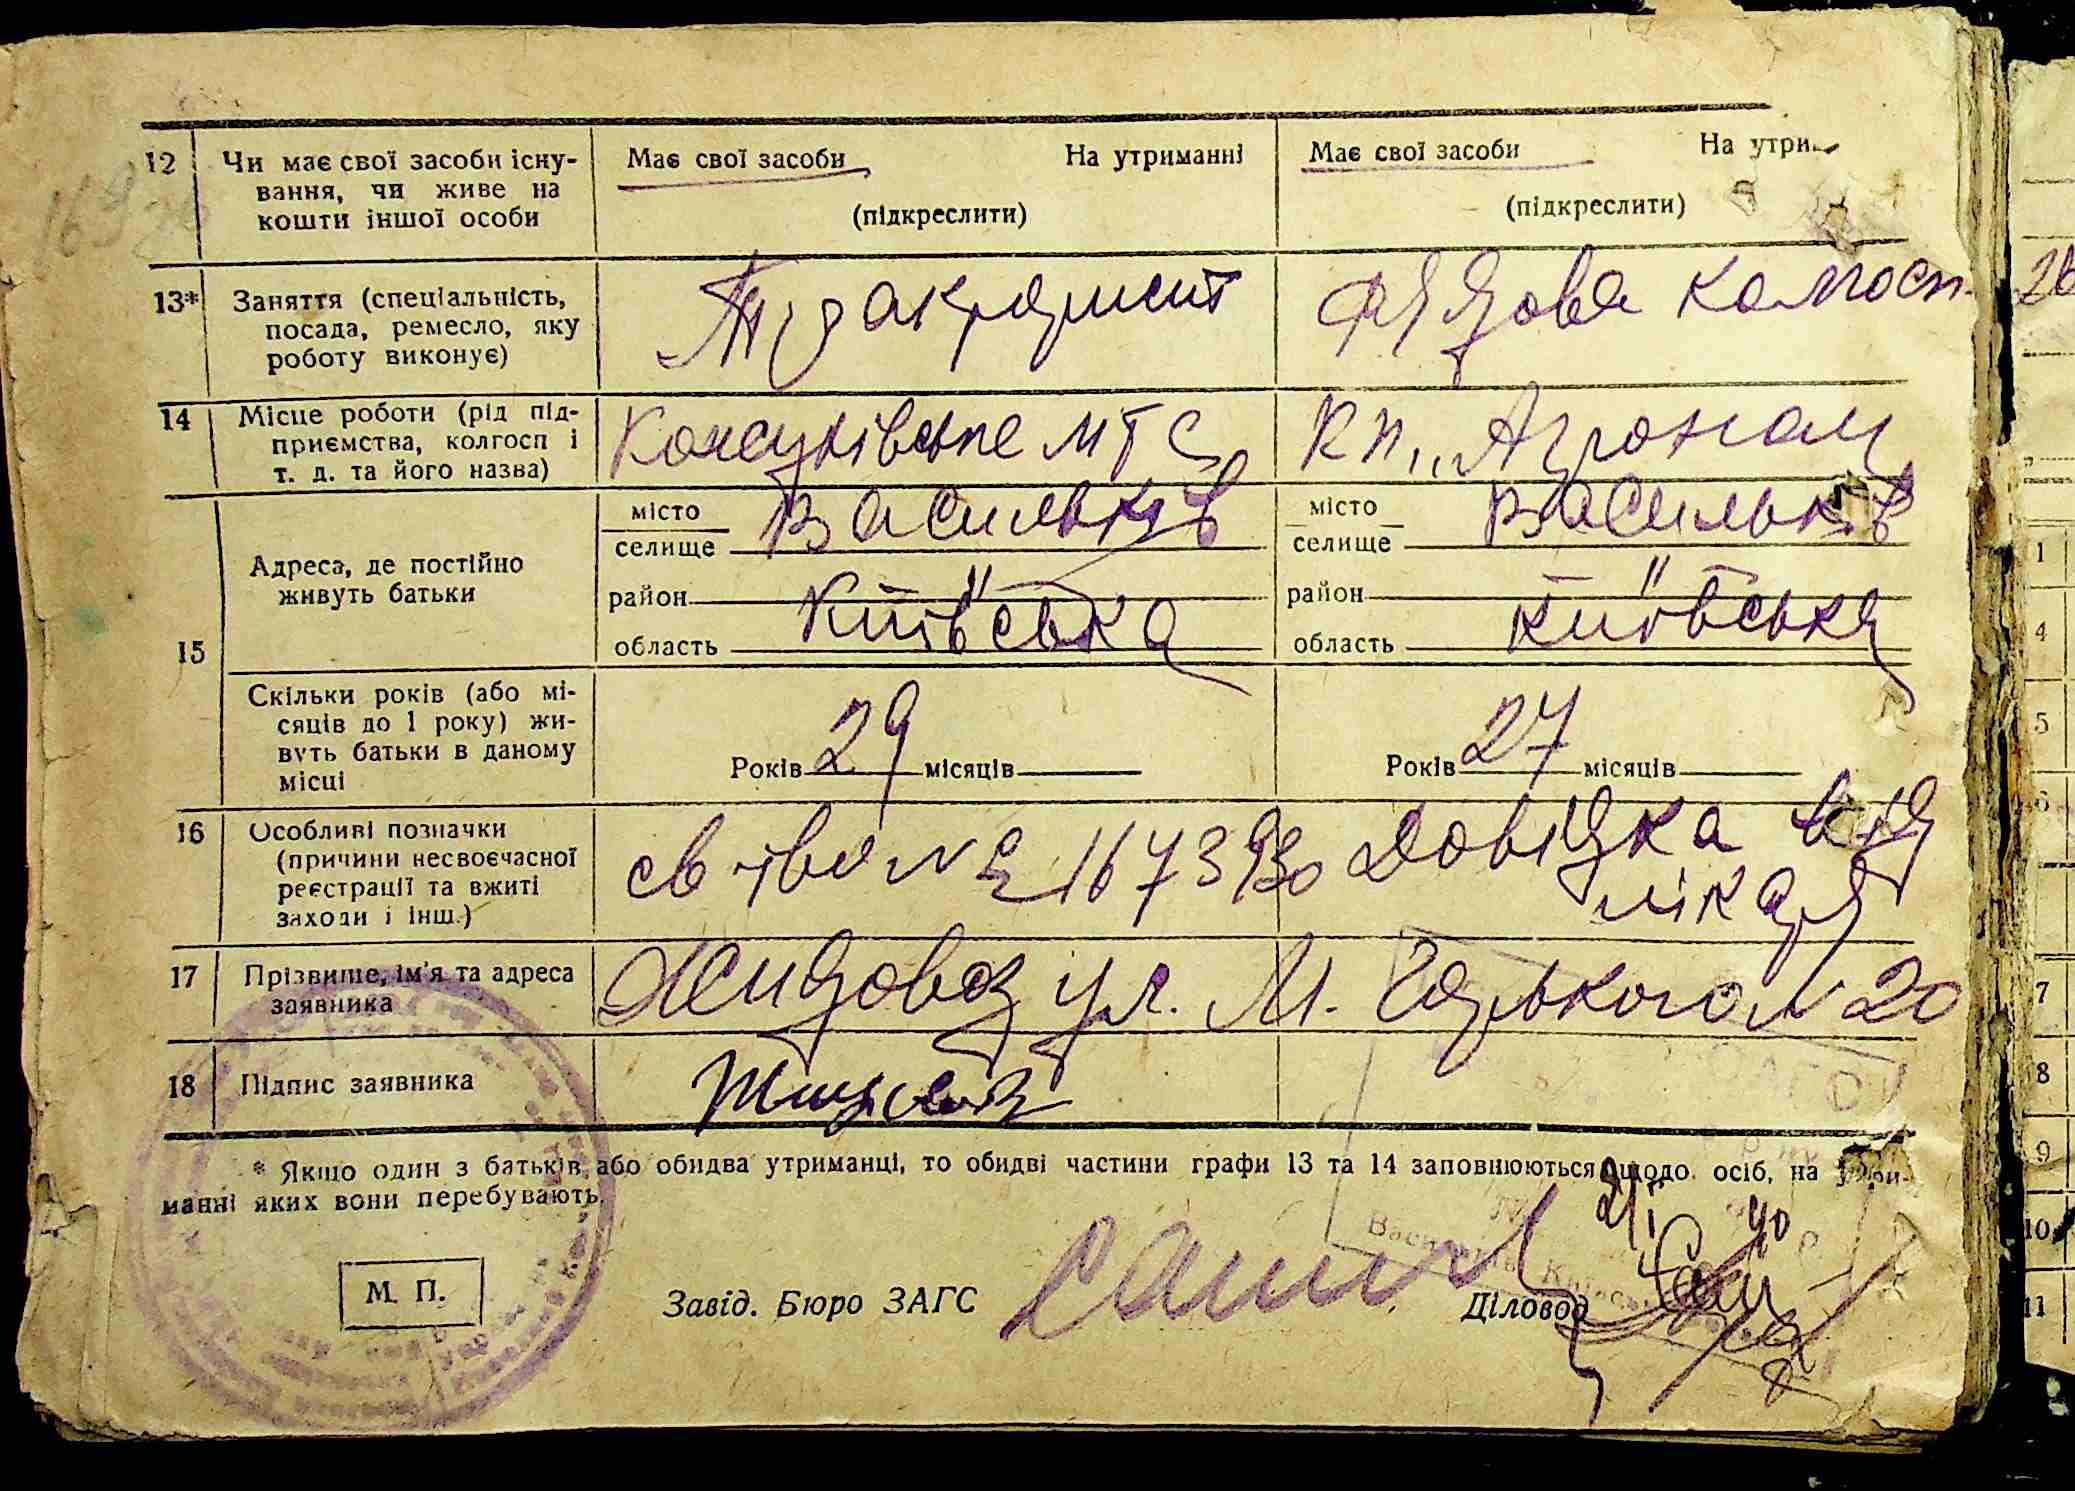 12 Чи має свої засоби існу-
вання, чи живе на
кошти іншої особи
Має свої засоби На утриманні
(підкреслити)
Має свої засоби На утри
(підкреслити)
13* Заняття (спеціальність,
посада, ремесло, яку
роботу виконує)
Тракторист
Рядова колгосп.
14 Місце роботи (рід під-
приємства, колгосп і
т. д. та його назва)
МТС
кп. „Агроном
15 Адреса, де постійно
живуть батьки
місто Васильків
селище
район "
область Київська
місто Васильків
селище
район — " —
область Київська
Скільки років (або мі-
сяців до 1 року) жи-
вуть батьки в даному
місці
Років 29 місяців
Років 27 місяців
16 Особливі позначки
(причини несвоєчасної
реєстрації та вжиті
заходи і інш.)
св-тво № Довідка від
лікаря
17 Прізвище, ім'я та адреса
заявника
ул. М. Горького № 20
18 Підпис заявника
* Якщо один з батьків або обидва утриманці, то обидві частини графи 13 та 14 заповнюються щодо осіб, на утри-
манні яких вони перебувають.
М. П.
Завід. Бюро ЗАГС
Діловод
1
4
5
6
7
8
9
10
11